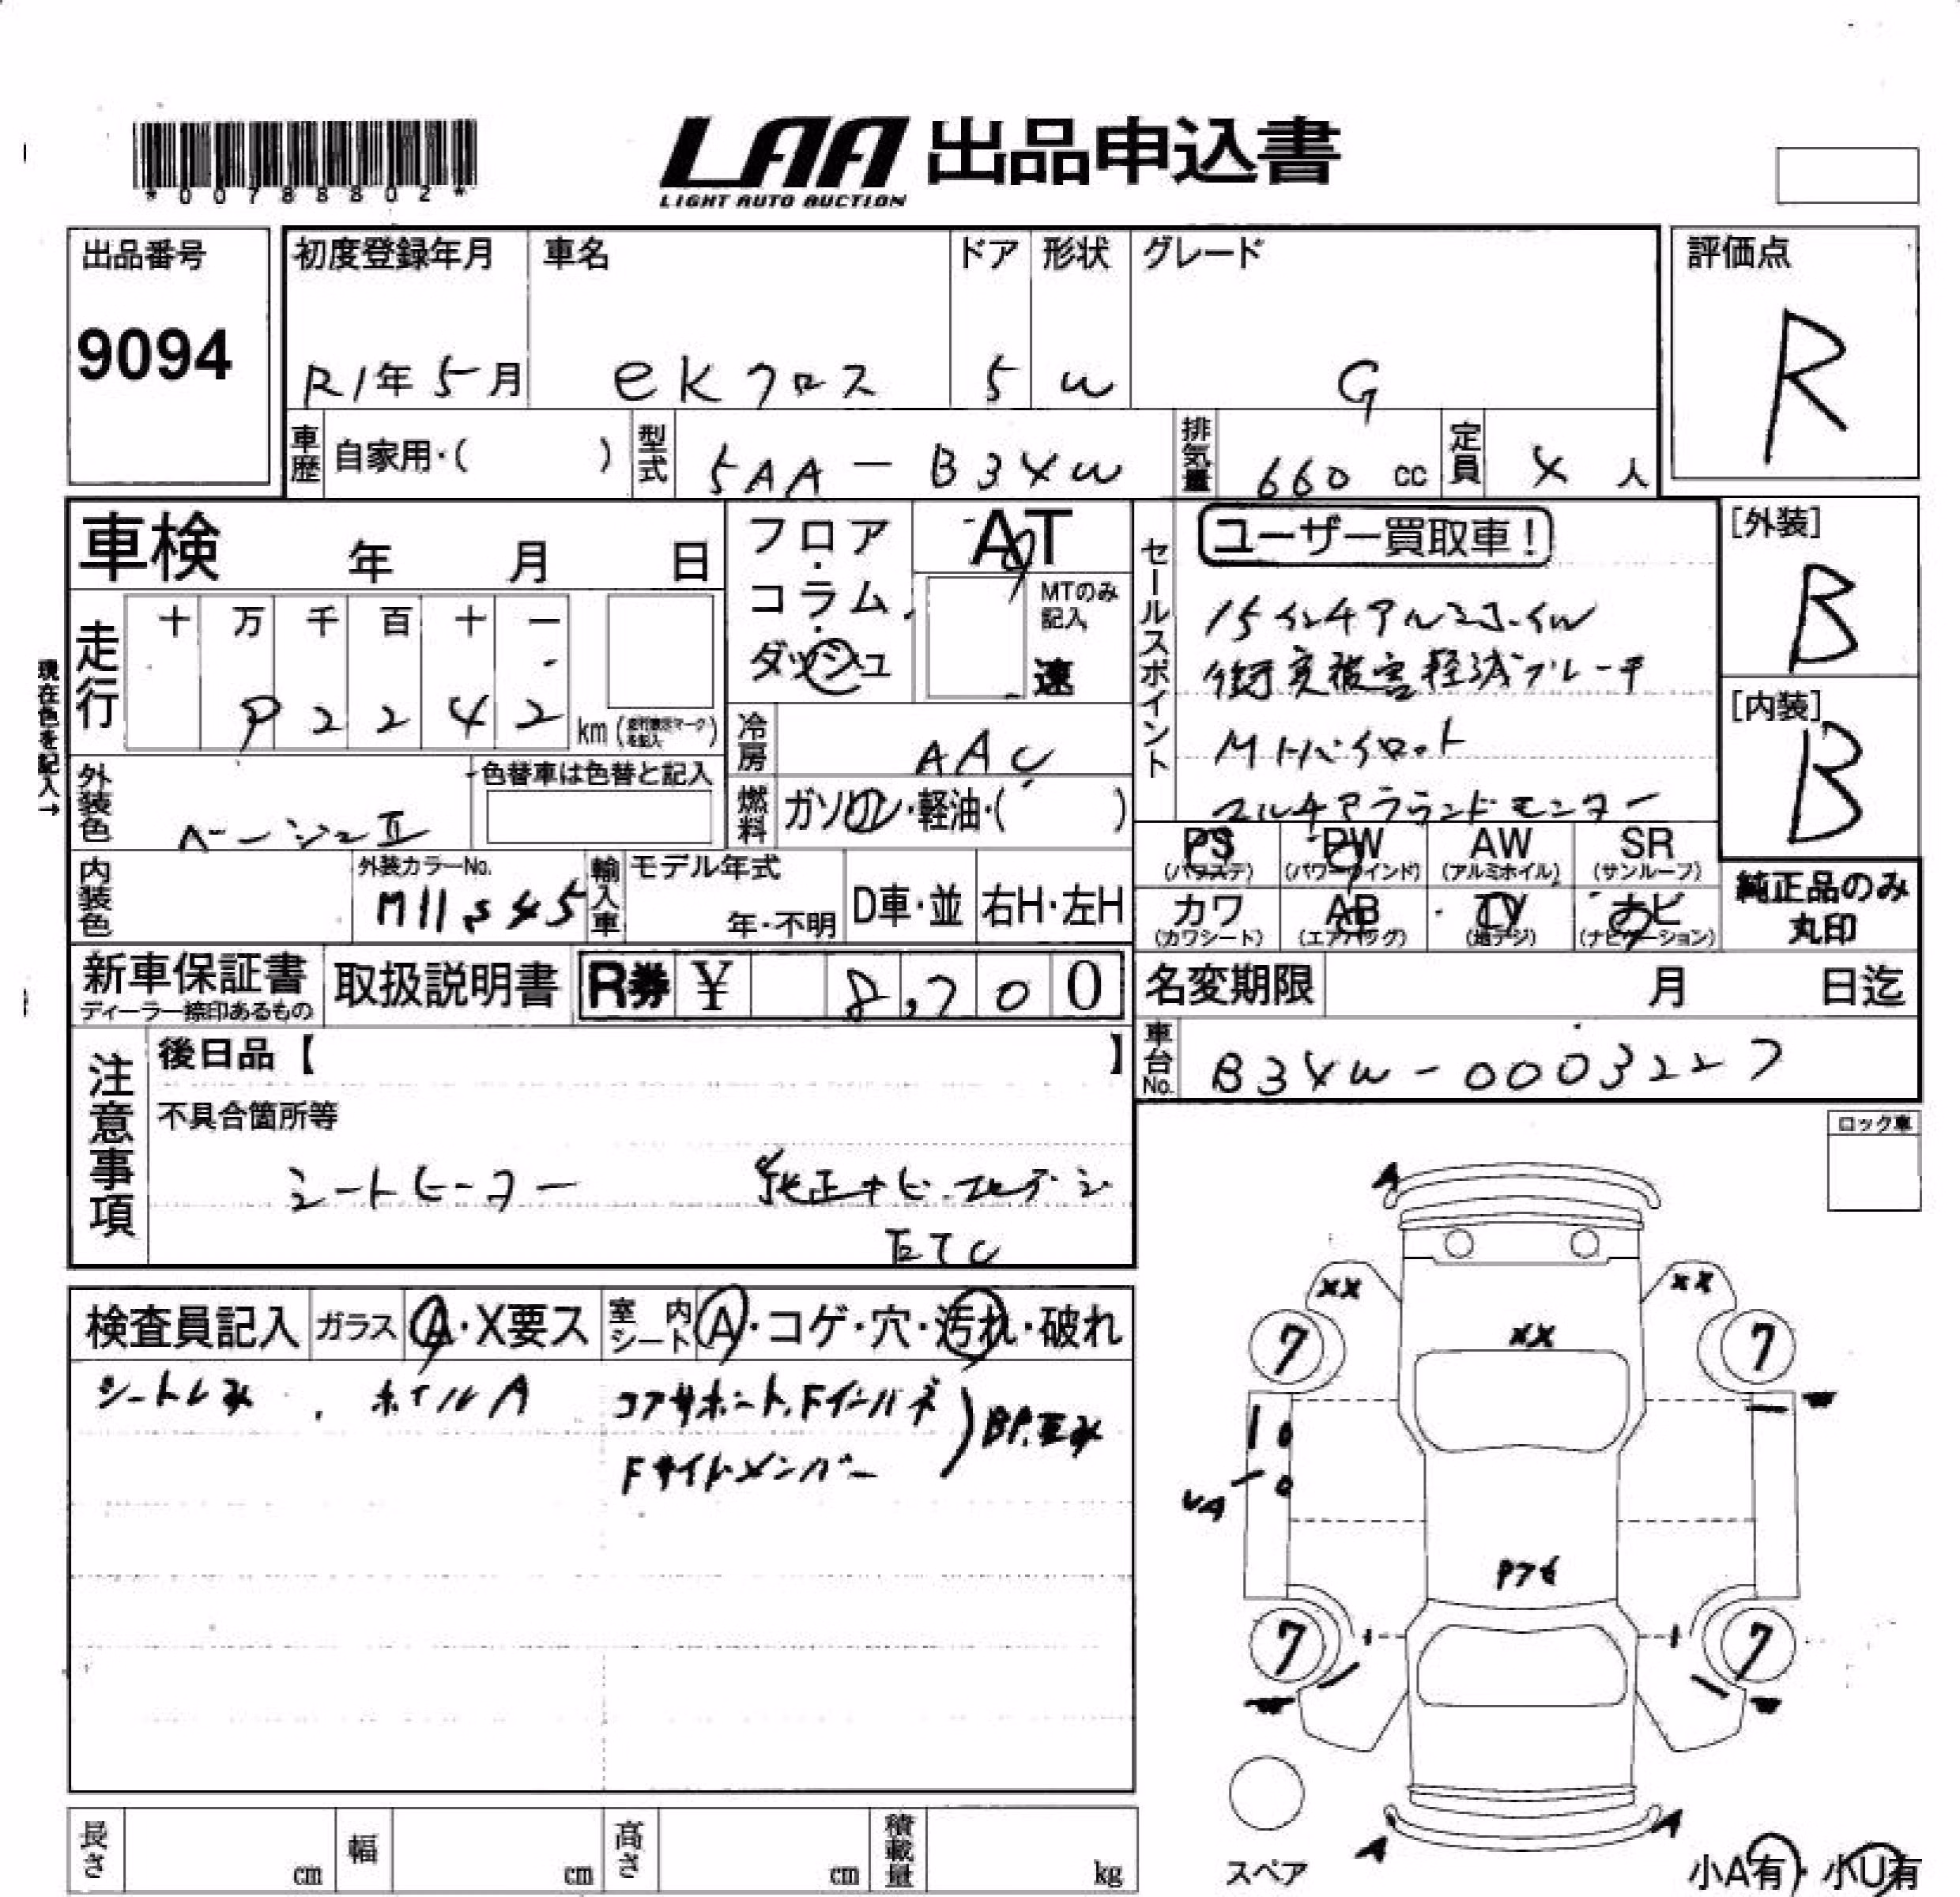 *00788802*
LAA 出品申込書
LIGHT AUTO AUCTION
出品番号
9094
初度登録年月
R1年5月
車名
eKクロス
ドア
5
形状
W
グレード
G
評価点
R
車歴
自家用・( )
型式
5AA-B34W
排気量
660 cc
定員
4 人
車検 年 月 日
フロア・コラム・ダッシュ
AT
MTのみ記入
速
セールスポイント
ユーザー買取車!
15インチアルミホイル
衝突被害軽減ブレーキ
MIパイロット
マルチアラウンドモニター
[外装]
B
[内装]
B
現在色を記入→
走行
十 万 千 百 十 一
9 2 2 4 2
km (走行表示マークを記入)
冷房
AAC
外装色
ベージュII
色替車は色替と記入
燃料
ガソリン・軽油・( )
PS (パワステ)
PW (パワーウインド)
AW (アルミホイル)
SR (サンルーフ)
内装色
外装カラーNo.
輸入車
モデル年式
年・不明
D車・並
右H・左H
カワ (カワシート)
AB (エアバッグ)
TV (地デジ)
ナビ (ナビゲーション)
純正品のみ
丸印
新車保証書
ディーラー捺印あるもの
取扱説明書
R券 ¥ 8,700
名変期限 月 日迄
車台No.
B34W-0003227
注意事項
後日品【 】
不具合箇所等
シートヒーター 純正ナビ・フルデジ
ETC
ロック車
検査員記入
ガラス A・X要ス
室内シート A・コゲ・穴・汚れ・破れ
シートしみ、ホイルA
コアサポート、Fインパネ
Fサイドメンバー
) BP.歪み
A
XX
XX
XX
7
7
UA
P76
7
7
A
A
スペア
小A有・小U有
長さ cm
幅 cm
高さ cm
積載量 kg